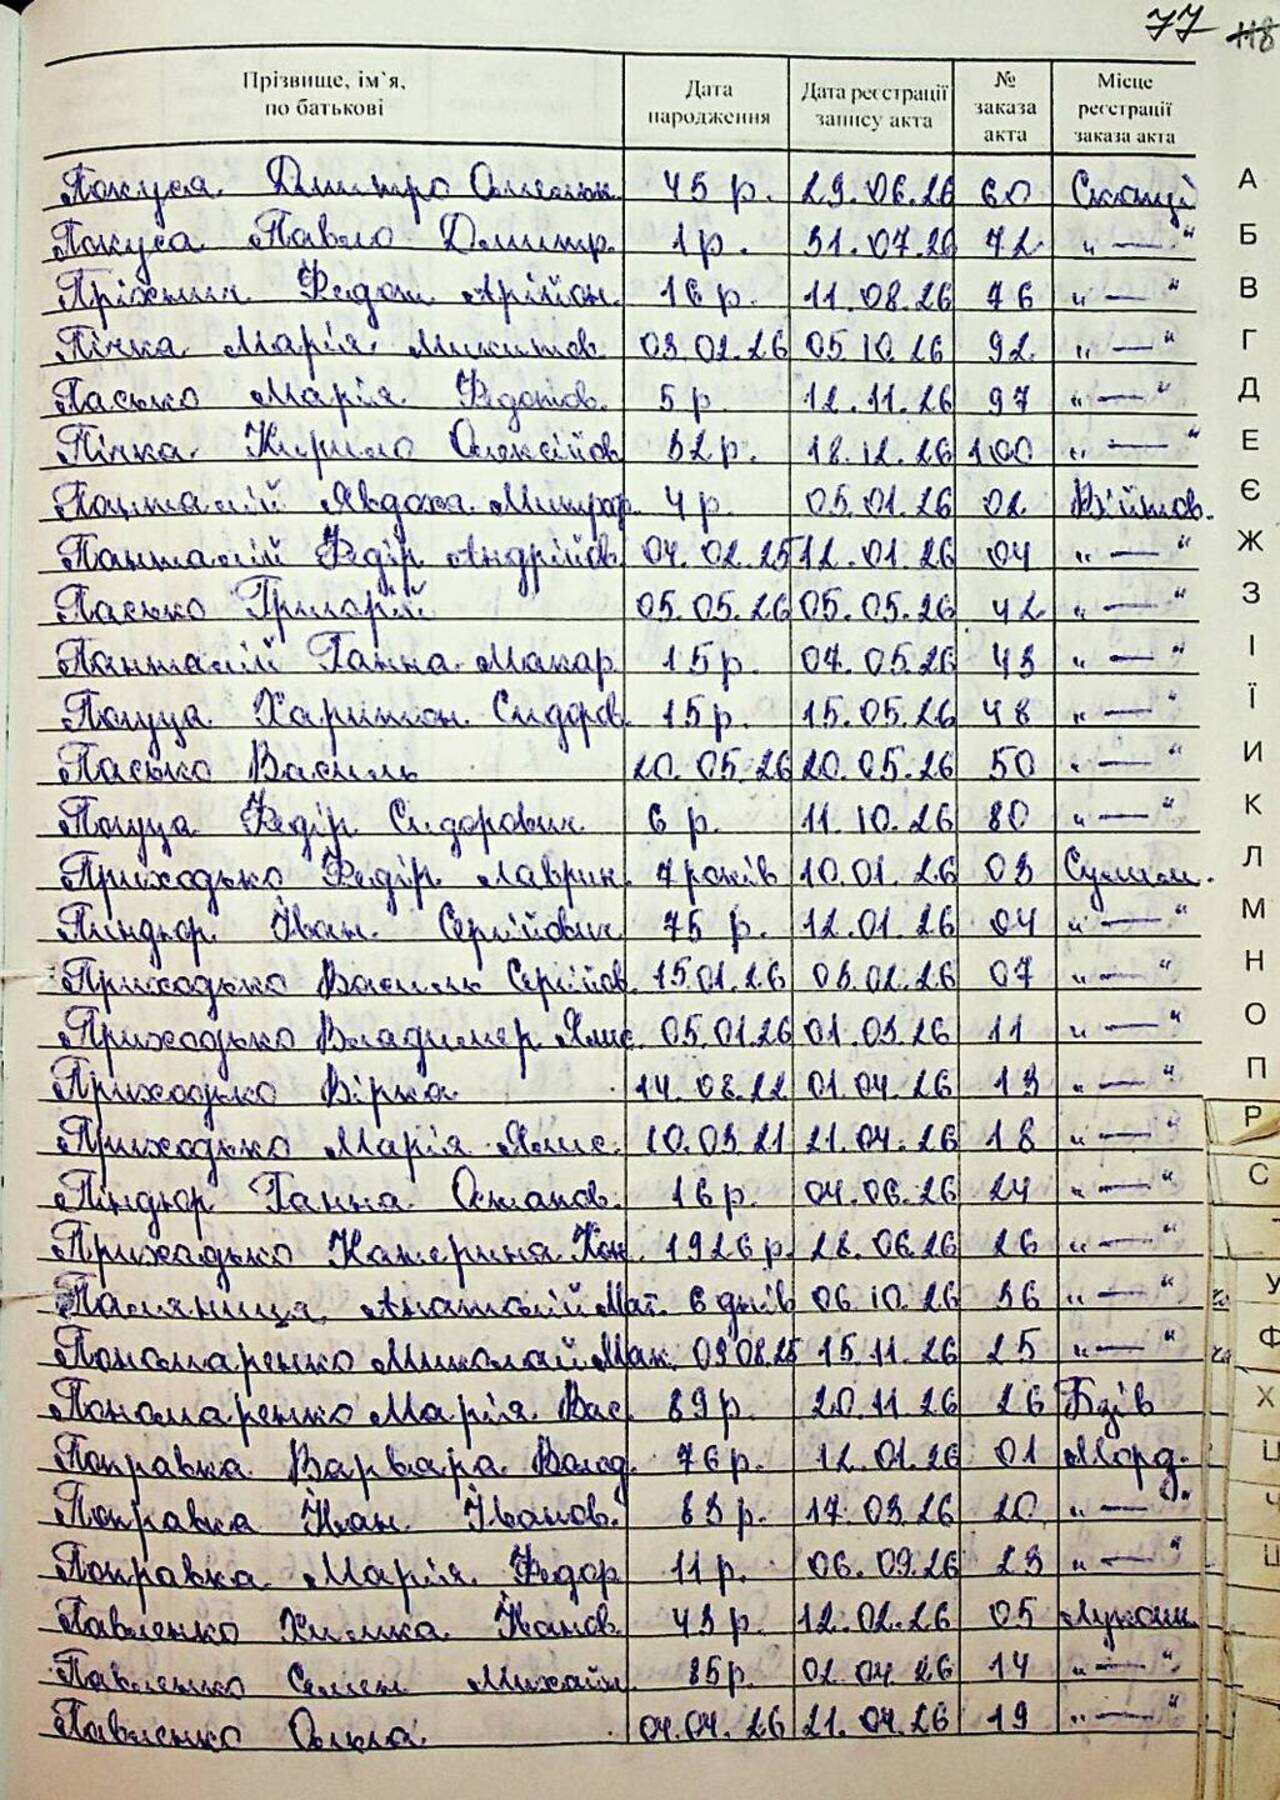 77 118
Прізвище, ім`я, по батькові Дата народження Дата реєстрації запису акта № заказа акта Місце реєстрації заказа акта
Покуса Дмитро 45 р. 29.06.26 60 Скопці А
Покуса Павло Дмитр. 1 р. 31.07.26 72 „—“ Б
Федот 16 р. 11.08.26 76 „—“ В
Пічка Марія Микитов. 03.02.26 05.10.26 92 „—“ Г
Пасько Марія Федотов. 5 р. 12.11.26 97 „—“ Д
Пічка Кирило Олексійов 52 р. 18.12.26 100 „—“ Е
Явдоха Митроф. 4 р. 05.01.26 02 Війтов. Є
Федір Андрійов. 04.02.25 12.01.26 04 „—“ Ж
Пасько Григорій 05.05.26 05.05.26 42 „—“ З
Ганна Макар. 15 р. 07.05.26 43 „—“ І
Харитон Сидоров. 15 р. 15.05.26 48 „—“ Ї
Пасько Василь 20.05.26 20.05.26 50 „—“ И
Федір Сидорович 6 р. 11.10.26 80 „—“ К
Приходько Федір Лаврин. 7 років 10.01.26 03 Сулим. Л
Пиндюр Іван Сергійович 75 р. 12.01.26 04 „—“ М
Приходько Василь Сергійов. 15.01.26 03.02.26 07 „—“ Н
Приходько Владимер 05.01.26 01.03.26 11 „—“ О
Приходько Вірка 14.08.22 01.04.26 13 „—“ П
Приходько Марія 10.03.21 21.04.26 18 „—“ Р
Піндюр Ганна Остапов. 16 р. 04.06.26 24 „—“ С
Приходько Катерина Кон. 1926 р. 28.06.26 26 „—“
Паляниця Анатолій Мат. 6 днів 06.10.26 36 „—“ У
Пономаренко Миколай Мак. 09.08.25 15.11.26 25 „—“ Ф
Пономаренко Марія Вас. 89 р. 20.11.26 26 Бзів Х
Поправка Варвара Волод. 76 р. 12.01.26 01 Морд. Ц
Поправка Іван Іванов. 83 р. 17.03.26 20 „—“ Ч
Поправка Марія Федор. 11 р. 06.09.26 23 „—“
Павленко Химка Іванов. 43 р. 12.02.26 05 Лукаш.
Павленко Семен Михайл. 85 р. 02.04.26 14 „—“
Павленко Олена 04.04.26 21.04.26 19 „—“